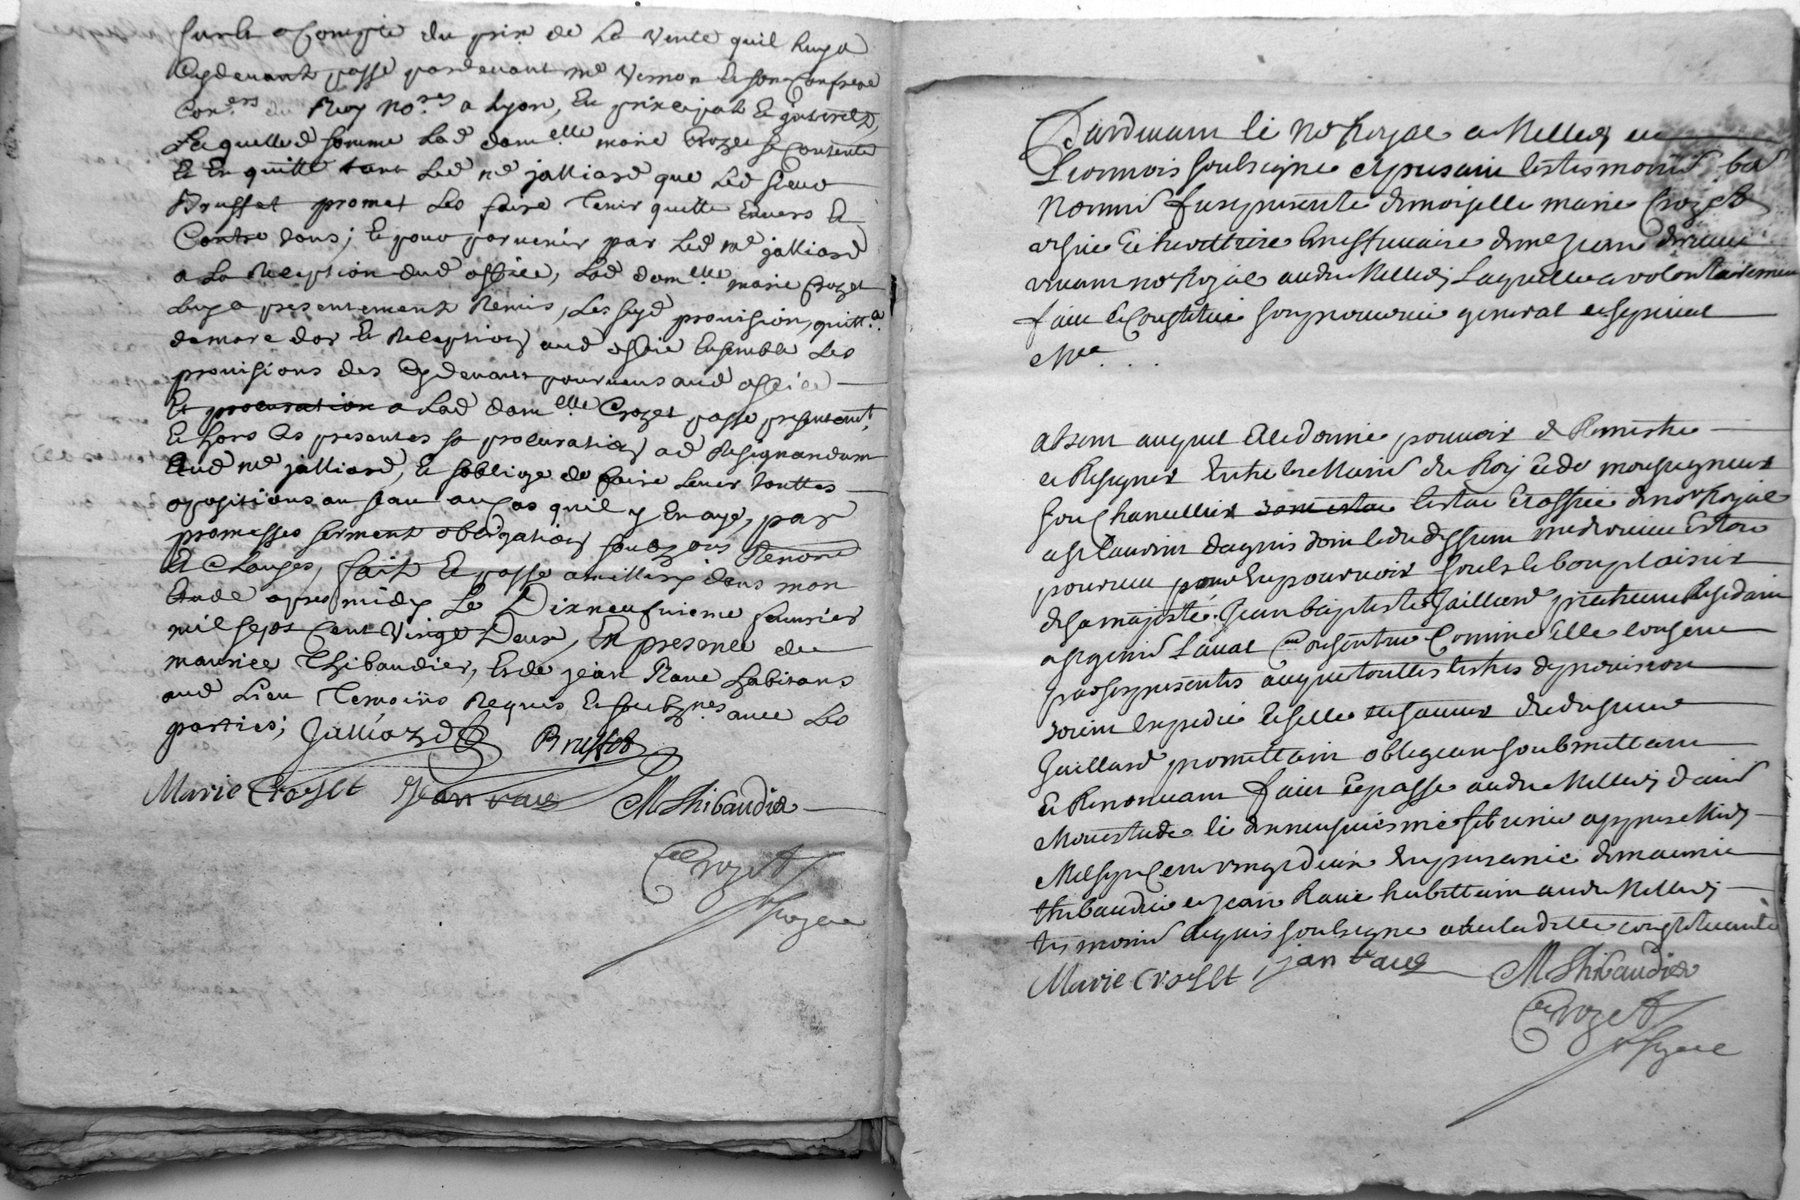 Sur le acompte du prix de la vente quil luy a
Cydevant passé pardevant me vernon et son Confrere
Con.ers du Roy No.res a Lyon, En principal Et jnterets,
Laquelle somme lad dam.elle marie Crozet se Contente
Et En quitte tant Led me jalliard que Led sieur
Brusset promet Les faire Tenir quitte Envers Et
Contre tous; Et pour parvenir par Led me jalliard
a La Reception dud office, Lad dam.elle marie Crozet
Luy a presentement Remis, Les susd provision, quitt.ce
de marc dor Et Reception aud office Ensemble Les
provisions des Cydevant pourveus aud office
Et procuration a Lad dam.elle Crozet passé presentem.t
Et hors Les presentes sa procuration ad Resignandum
Aud me jalliard, Et soblige de faire Lever Touttes
opositions au seau au Cas quil y En aye, par
promesses serment obligations soubz ons Renon
Et Clauses, fait Et passé a millery dans mon
Etude apres midy Le Dixneufvieme fevrier
mil sept Cent Vingt Deux, En presence de
maurice Thibaudier, Et de jean Rave habitans
aud Lieu Temoins Requis Et soubz.nes avec Les
parties; Jalliard Brusset
Marie Croset Jean rave MThibaudier
Crozet
Pardevant le Nore Royal a Millery en
Lionnois soubsigné et presant les tesmoins bas
Nommés fut presente demoiselle marie Crozet
et heritiere de me jean
vivant nore Royal audit Millery Laquelle a volontairement
fait et Constitué son procureur general et special
Me . . .
absent auquel Elle donne pouvoir de Remettre
et Resigner Entre les Mains du Roy et de monseigneur
son Chancellier lestat et office de nore Royal
a st Laurant dagnis dont ledit deffunt
pourveu pour En pourvoir soubs le bon plaisir
de sa majesté Jean baptiste Jailliard praticien Residant
a st genis Laval Consentant Comme Elle Consent
par ses presentes a que touttes lettres de provision
soient Expedié et sellé du
Jaillard promettant obligeant soubmettant
et Renonceant fait et passé audit Millery dans
Mon estude le dixneufvieme febvrier appres Midy
Mil sept Cent vingt deux En presance de maurice
thibaudier et jean Rave habittant audit Millery
tesmoins Requis soubsigné avec la ditte constituante
Marie Croset jan rave MThibaudier
Crozet